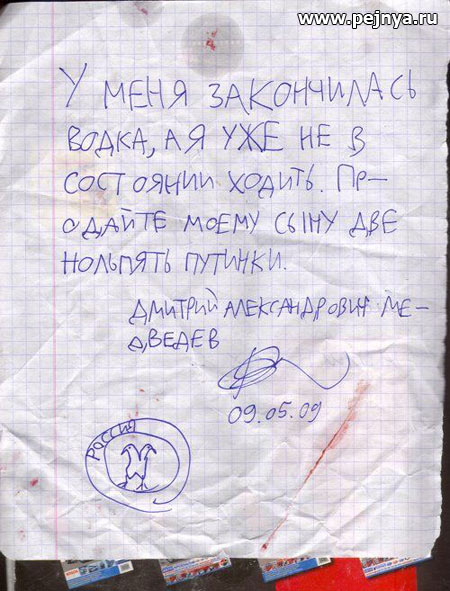 www.pejnya.ru
У МЕНЯ ЗАКОНЧИЛАСЬ
ВОДКА, А Я УЖЕ НЕ В
СОСТОЯНИИ ХОДИТЬ. ПР-
ОДАЙТЕ МОЕМУ СЫНУ ДВЕ
НОЛЬПЯТЬ ПУТИНКИ.
ДМИТРИЙ АЛЕКСАНДРОВИЧ МЕ-
ДВЕДЕВ
09.05.09
РОССИЯ